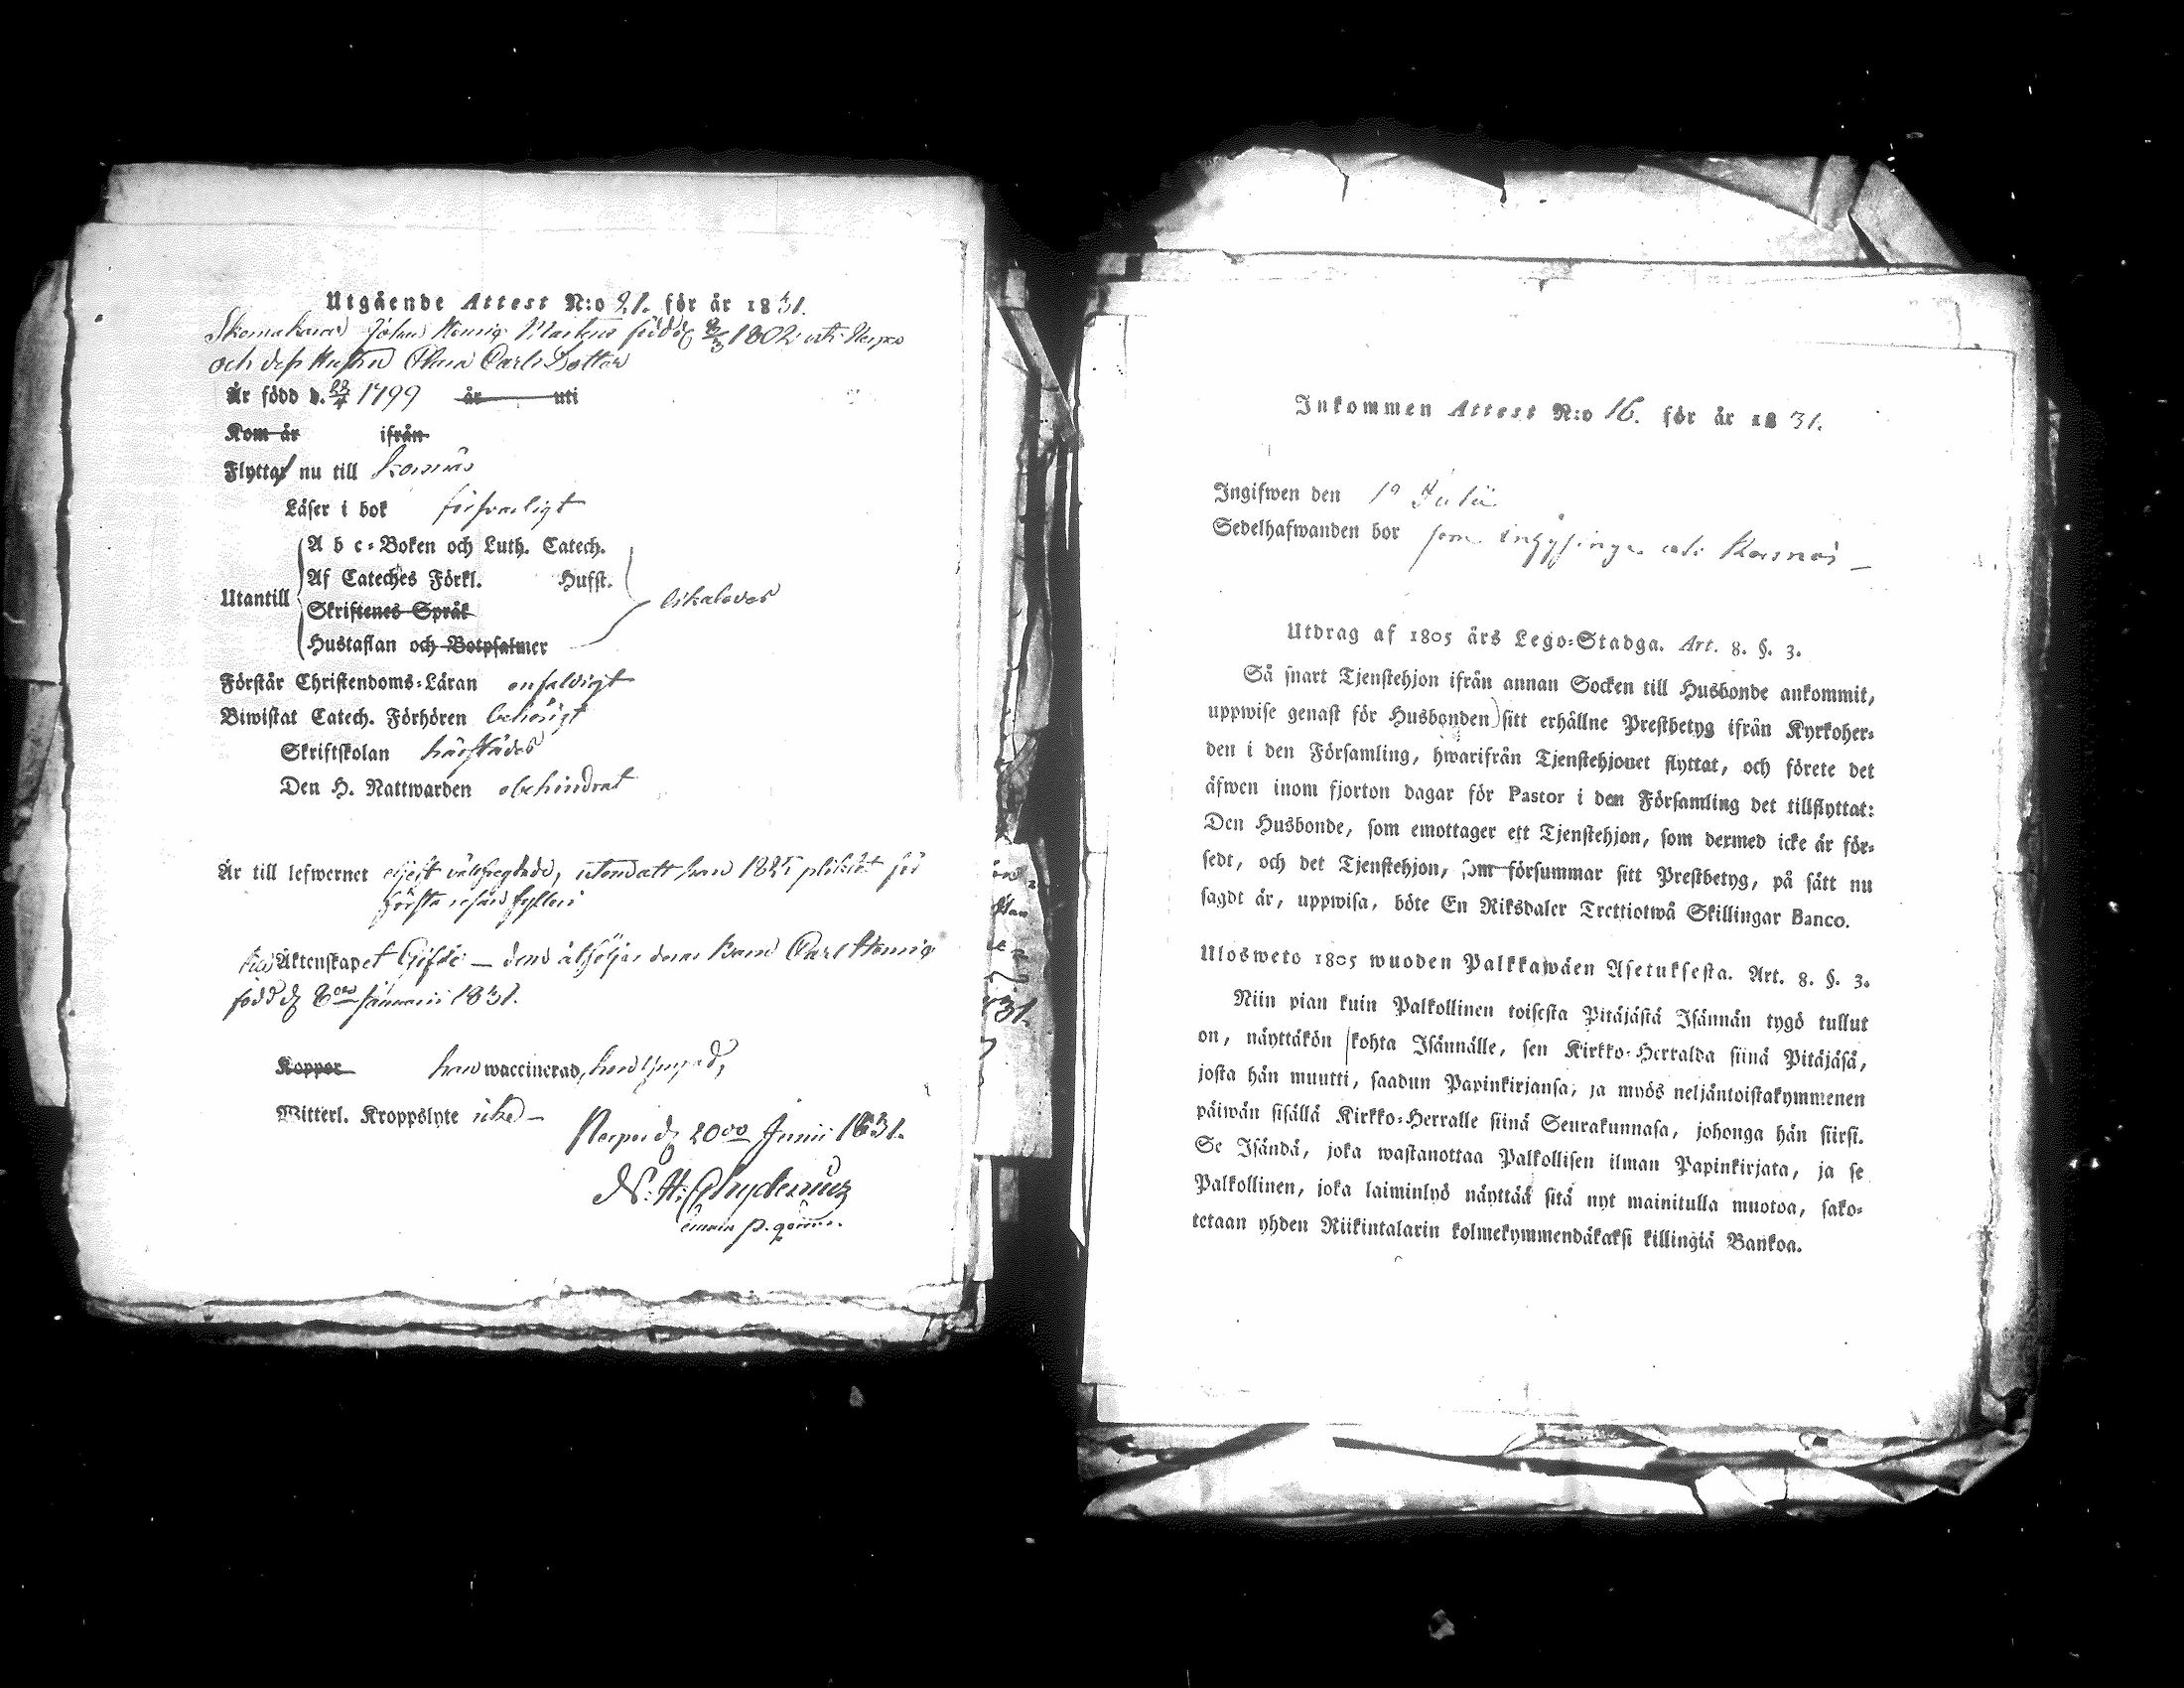 Utgående Attest N:o 21. för år 1831.
Skomakaren Johan Henric födde 8/3 1802 uti Nerpes
och dess Hustru Carls Dotter
Är född d. 22/4 1799 år uti
Kom år ifrån
Flyttar nu till Korsnäs
Läser i bok försvarligt
A b c-Boken och Luth. Catech.
Af Cateches Förkl. Husst.
Utantill likaledes
Skriftenes Språk
Hustaflan och Botpsalmer
Förstår Christendoms-Läran enfaldigt
Biwistat Catech. Förhören behörigt
Skriftskolan härstädes
Den H. Nattwarden obehindrat
Är till lefwernet utom att han 1825 pliktat för
första resan fylleri
Äktenskapet Gifte — dem åtföljer deras Son Carl Henric
född d. Januarii 1831.
Koppor han waccinerad, hon ympad,
Witterl. Kroppslyte icke —
Nerpes d. 20de Junii 1831.
N. H. Chydenius
Inkommen Attest N:o 16. för år 1831.
Ingifwen den 19 Julii
Sedelhafwanden bor som inhysing uti Korsnäs —
Utdrag af 1805 års Lego-Stadga. Art. 8. §. 3.
Så snart Tjenstehjon ifrån annan Socken till Husbonde ankommit,
uppwise genast för Husbonden sitt erhållne Prestbetyg ifrån Kyrkoher-
den i den Församling, hwarifrån Tjenstehjonet flyttat, och förete det
äfwen inom fjorton dagar för Pastor i den Församling det tillflyttat:
Den Husbonde, som emottager ett Tjenstehjon, som dermed icke är för-
sedt, och det Tjenstehjon, som försummar sitt Prestbetyg, på sätt nu
sagdt är, uppwisa, böte En Riksdaler Trettiotwå Skillingar Banco.
Ulosweto 1805 wuoden Palkkawäen Asetuksesta. Art. 8. §. 3.
Niin pian kuin Palkollinen toisesta Pitäjästä Isännän tygö tullut
on, näyttäkön kohta Isännälle, sen Kirkko-Herralda siinä Pitäjäsä,
josta hän muutti, saadun Papinkirjansa, ja myös neljäntoistakymmenen
päiwän sisällä Kirkko-Herralle siinä Seurakunnasa, johonga hän siirsi.
Se Isändä, joka wastanottaa Palkollisen ilman Papinkirjata, ja se
Palkollinen, joka laiminlyö näyttää sitä nyt mainitulla muotoa, sako-
tetaan yhden Riikintalarin kolmekymmendäkaksi killingiä Bankoa.